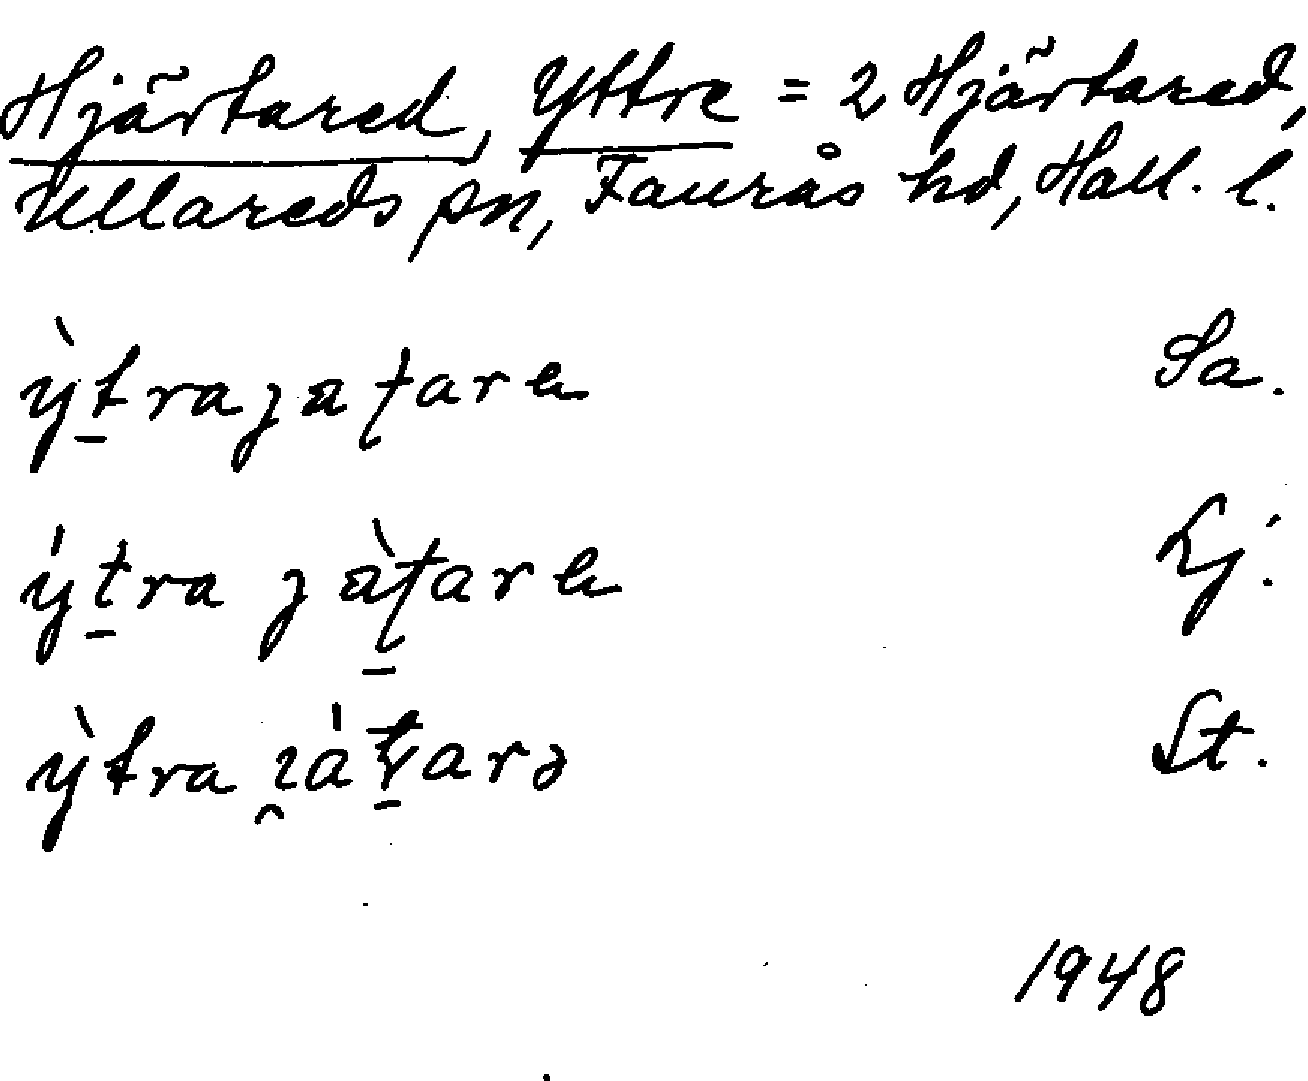 Hjärtared, Yttre = 2 Hjärtared,
Ullareds sn, Faurås hd, Hall. l.
ỳt̠raȷaʈarə Sa.
ýt̠ra ȷàʈ̠arə Lj.
ỳtra ɿát̠arə St.
1948